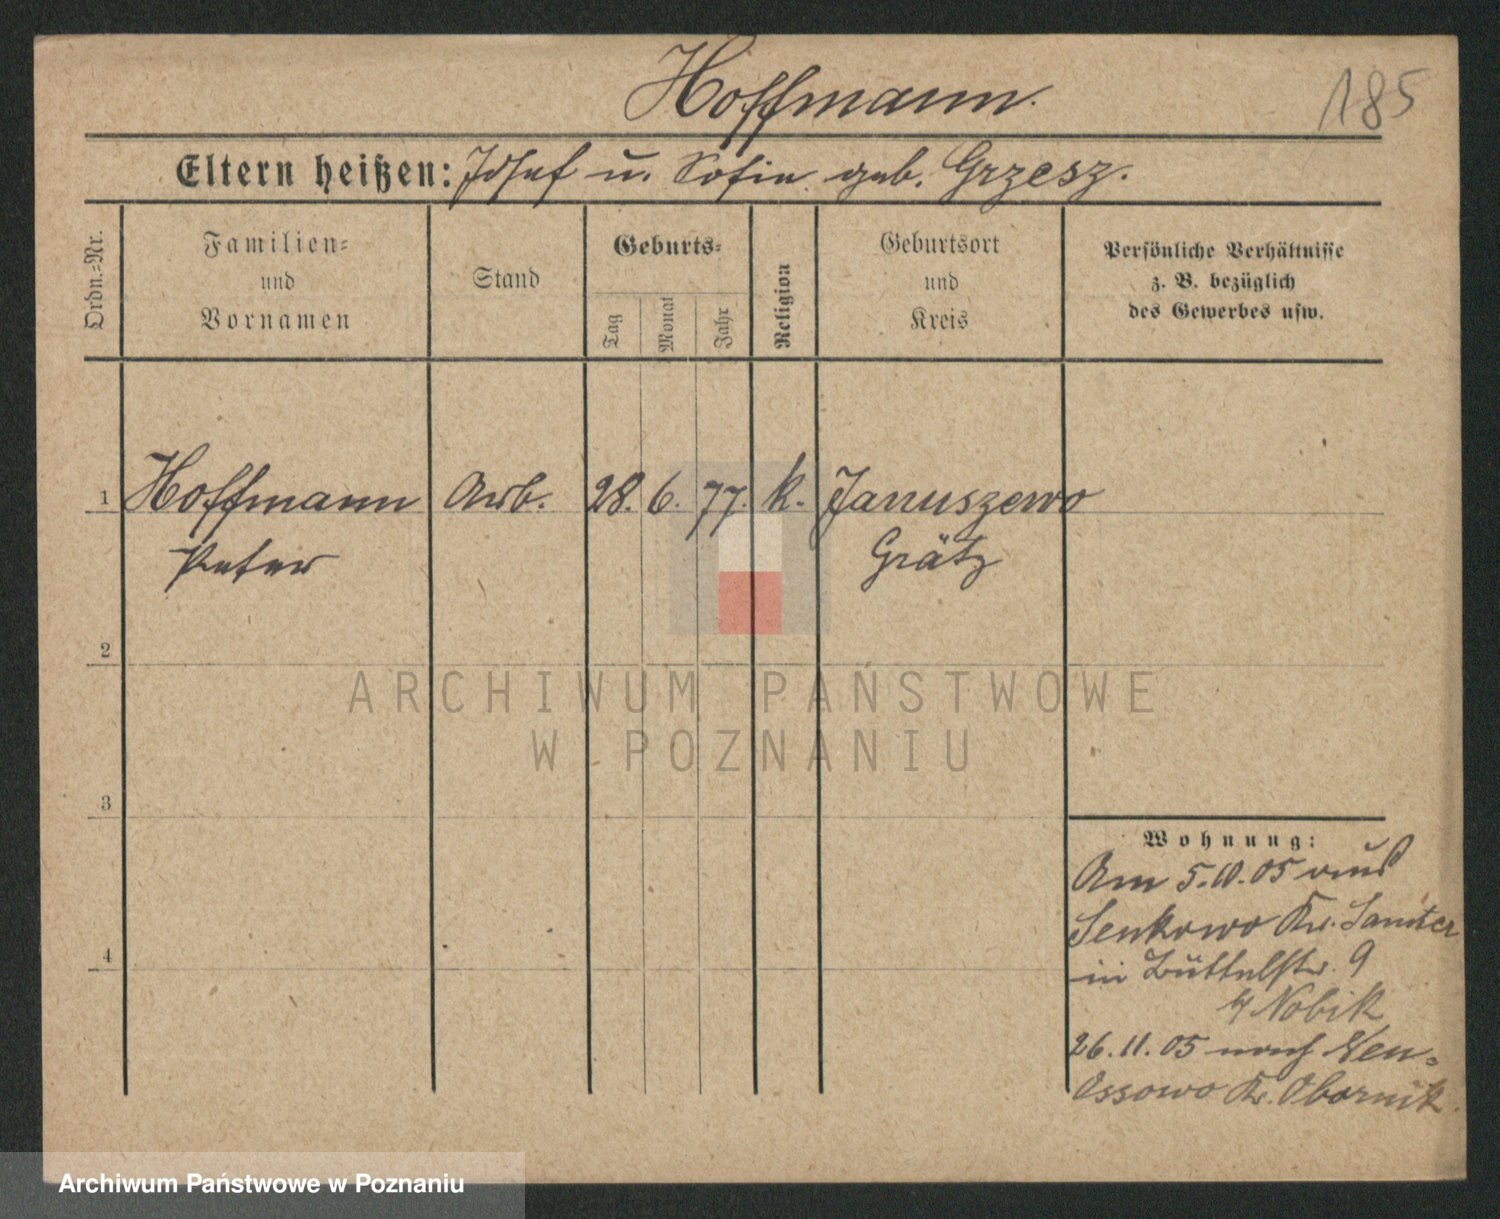 Hoffmann.
185
Eltern heißen: Josef u. Sofie geb. Grzesz.
Ordn.=Nr.
Familien=
und
Vornamen
Stand
Geburts=
Tag
Monat
Jahr
Religion
Geburtsort
und
Kreis
Persönliche Verhältnisse
z. B. bezüglich
des Gewerbes usw.
1 Hoffmann Arb. 28. 6. 77. k. Januszewo
Peter Grätz
2
3
4
Wohnung:
Am 5.10.05 aus
Senkowo Kr. Samter
in Büttelstr. 9
b/ Nobik
26.11.05 nach Neu=
Ossowo Kr. Obornik.
ARCHIWUM PAŃSTWOWE
W POZNANIU
Archiwum Państwowe w Poznaniu